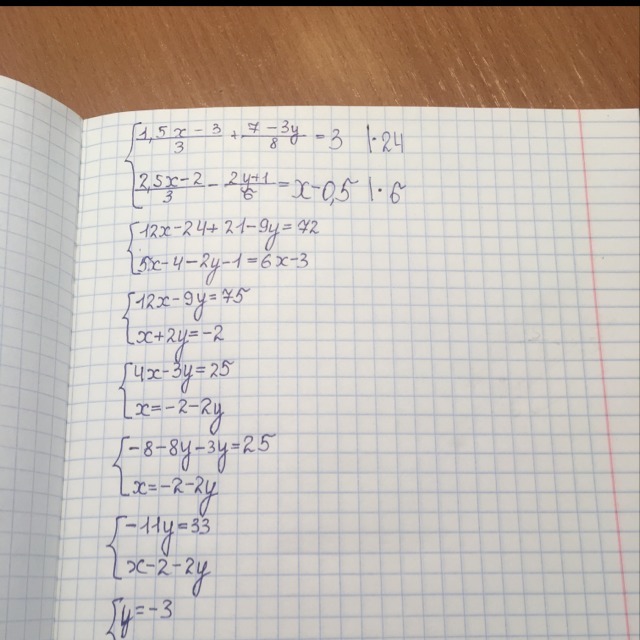 (1,5x-3)/3 + (7-3y)/8 = 3 |·24
(2,5x-2)/3 - (2y+1)/6 = x-0,5 |·6
12x-24+21-9y=72
5x-4-2y-1=6x-3
12x-9y=75
x+2y=-2
4x-3y=25
x=-2-2y
-8-8y-3y=25
x=-2-2y
-11y=33
x-2-2y
y=-3